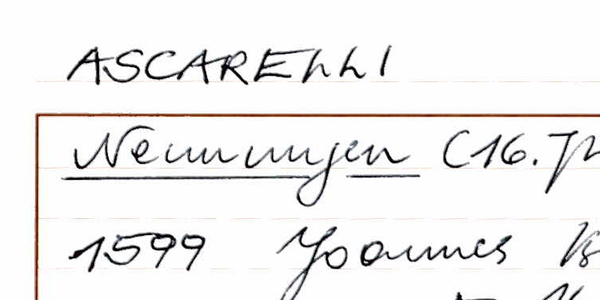 ASCARELLI
Nennungen (16. Jh
1599 Joannes